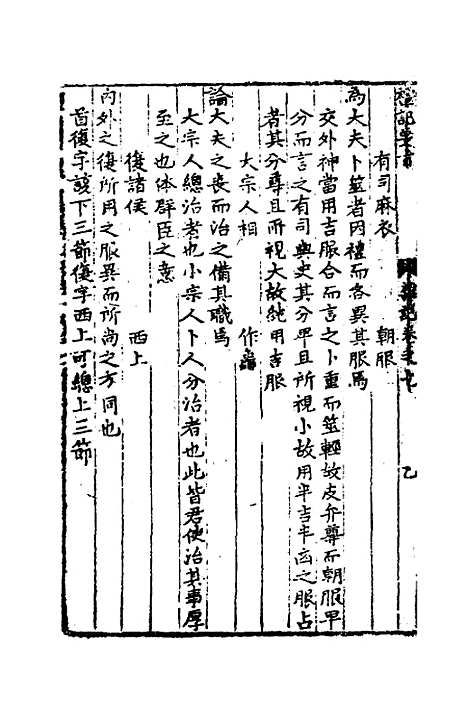 禮記要旨 雜記卷之七 乙
有司麻衣 朝服
為大夫卜筮者因禮而各異其服焉
交外神當用吉服合而言之卜重而筮輕故皮弁尊而朝服卑
分而言之有司與史其分卑且所視小故用半吉半凶之服占
者其分尊且所視大故純用吉服
大宗人相 作龜
論大夫之喪而治之備其職焉
大宗人總治者也小宗人卜人分治者也此皆君使治其事厚
至之也体群臣之意
復諸侯 西上
內外之復所用之服異而所尚之方同也
首復字該下三節復字西上可總上三節